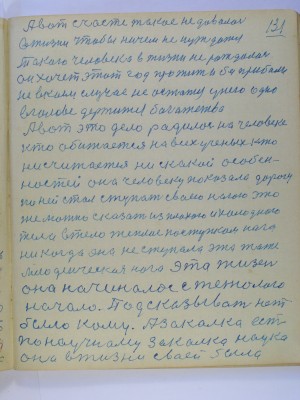 131
А вот счастье такое не довалос
в жизни чтобы ничем не нуждатся
Такого человека в жизни не рождалос
он хочет этот год прожить бы прибыли
не в коем случае не остатся у него одно
в голове держится богатство
А вот это дело родилос на человеке
кто обижается на всех ученых кто
не считается ни с какой особен-
ностей она человеку показала дорогу
по ней стал ступат свою ногою это
же можно сказат из плохого и холодного
тела в тело теплае поступком нога
никогда она не ступала эта таже
человеческая нога Эта жизен
она начиналос с тежолого
начало. Подсказыват нет
было кому. А закалка ест
по научнаму Закалка наука
она в жизни своей была